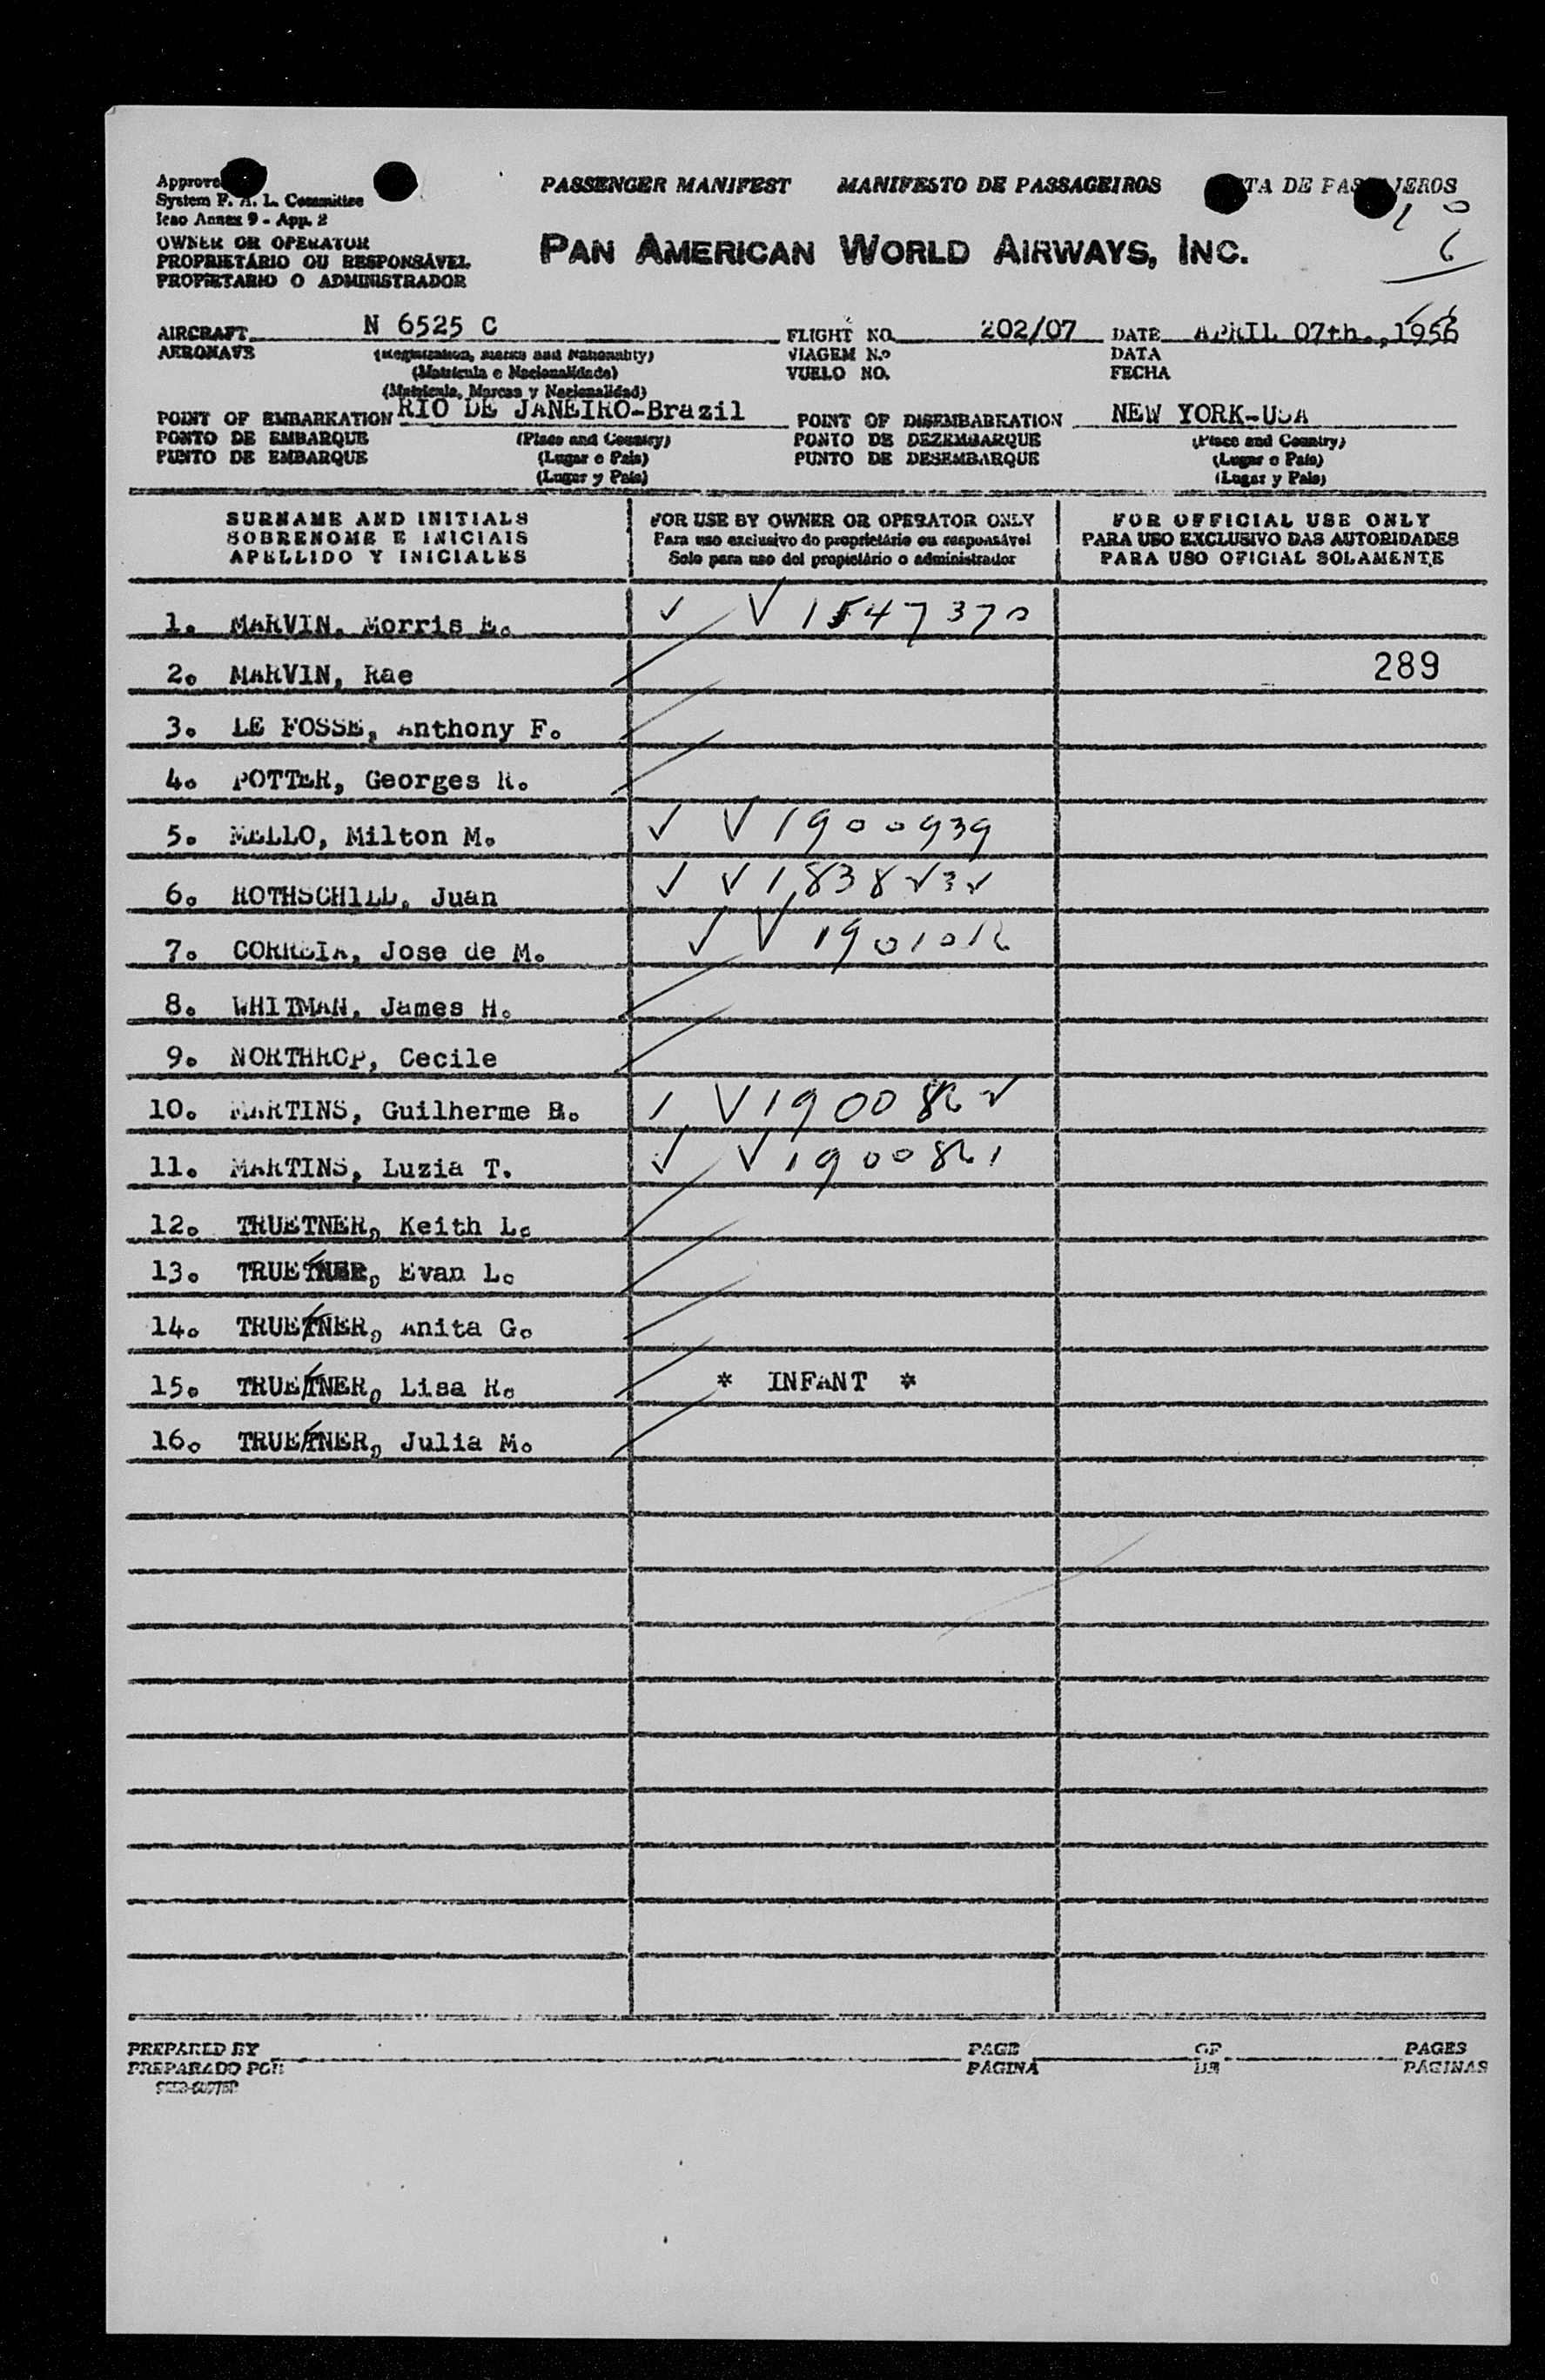 PASSENGER MANIFEST MANIFESTO DE PASSAGEIROS DE
System F. A. L. Committee
Icao Annex 9 - App. 2
OWNER OR OPERATOR
PROPRIETÁRIO OU RESPONSÁVEL
PROPIETARIO O ADMINISTRADOR
PAN AMERICAN WORLD AIRWAYS, INC.
6
AIRCRAFT N 6525 C FLIGHT NO. 202/07 DATE APRIL 07th., 1956
AERONAVE (Registration, marks and Nationality) VIAGEM N.º DATA
(Matrícula e Nacionalidade) VUELO NO. FECHA
(Matrícula, Marcas y Nacionalidad)
POINT OF EMBARKATION RIO DE JANEIRO-Brazil POINT OF DISEMBARKATION NEW YORK-USA
PONTO DE EMBARQUE (Place and Country) PONTO DE DEZEMBARQUE (Place and Country)
PUNTO DE EMBARQUE (Lugar e País) PUNTO DE DESEMBARQUE (Lugar e País)
(Lugar y País) (Lugar y País)
SURNAME AND INITIALS FOR USE BY OWNER OR OPERATOR ONLY FOR OFFICIAL USE ONLY
SOBRENOME E INICIAIS Para uso exclusivo do proprietário ou responsável PARA USO EXCLUSIVO DAS AUTORIDADES
APELLIDO Y INICIALES Solo para uso del propietário o administrador PARA USO OFICIAL SOLAMENTE
1. MARVIN, Morris E. ✓ V 1547370
2. MARVIN, Rae 289
3. LE FOSSE, Anthony F.
4. POTTER, Georges R.
5. MELLO, Milton M. ✓ V 1900939
6. ROTHSCHILD, Juan ✓ V
7. CORREIA, Jose de M. ✓ V
8. WHITMAN, James H.
9. NORTHROP, Cecile
10. MARTINS, Guilherme B. V
11. MARTINS, Luzia T. ✓ V
12. TRUETNER, Keith L.
13. TRUETNER, Evan L.
14. TRUETNER, Anita G.
15. TRUETNER, Lisa R. * INFANT *
16. TRUETNER, Julia M.
PREPARED BY PAGE OF PAGES
PREPARADO POR PÁGINA DE PÁGINAS